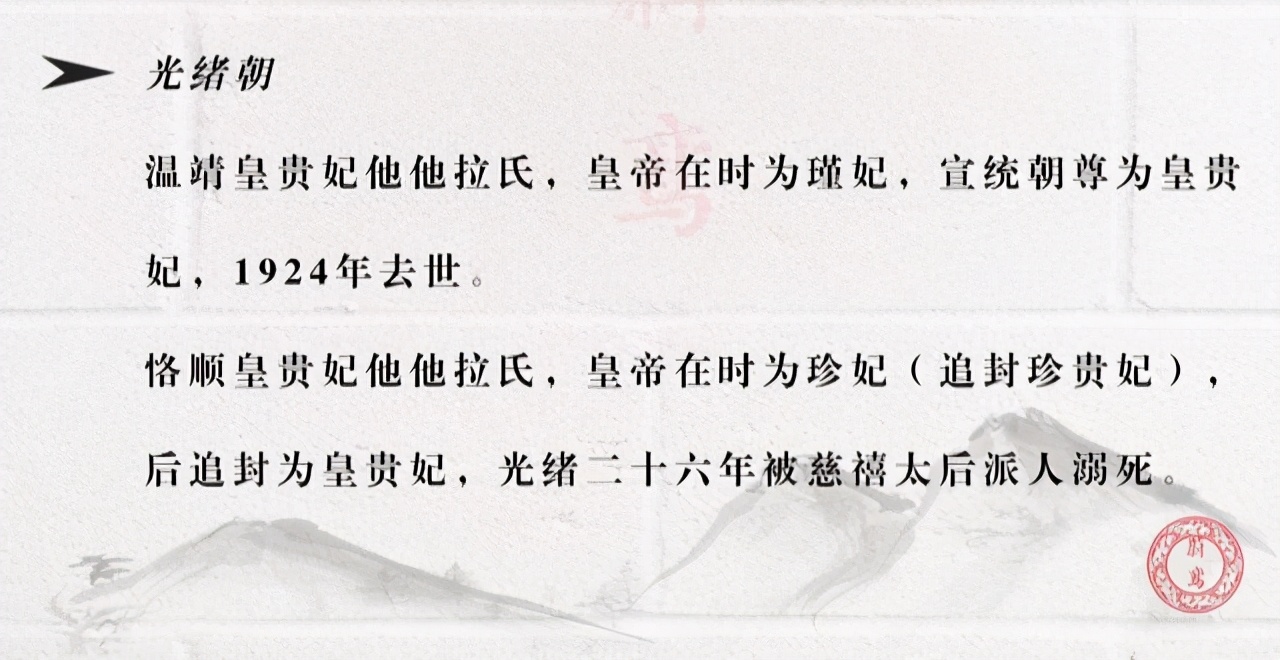 光绪朝
温靖皇贵妃他他拉氏，皇帝在时为瑾妃，宣统朝尊为皇贵
妃，1924年去世。
恪顺皇贵妃他他拉氏，皇帝在时为珍妃（追封珍贵妃），
后追封为皇贵妃，光绪二十六年被慈禧太后派人溺死。
鸾